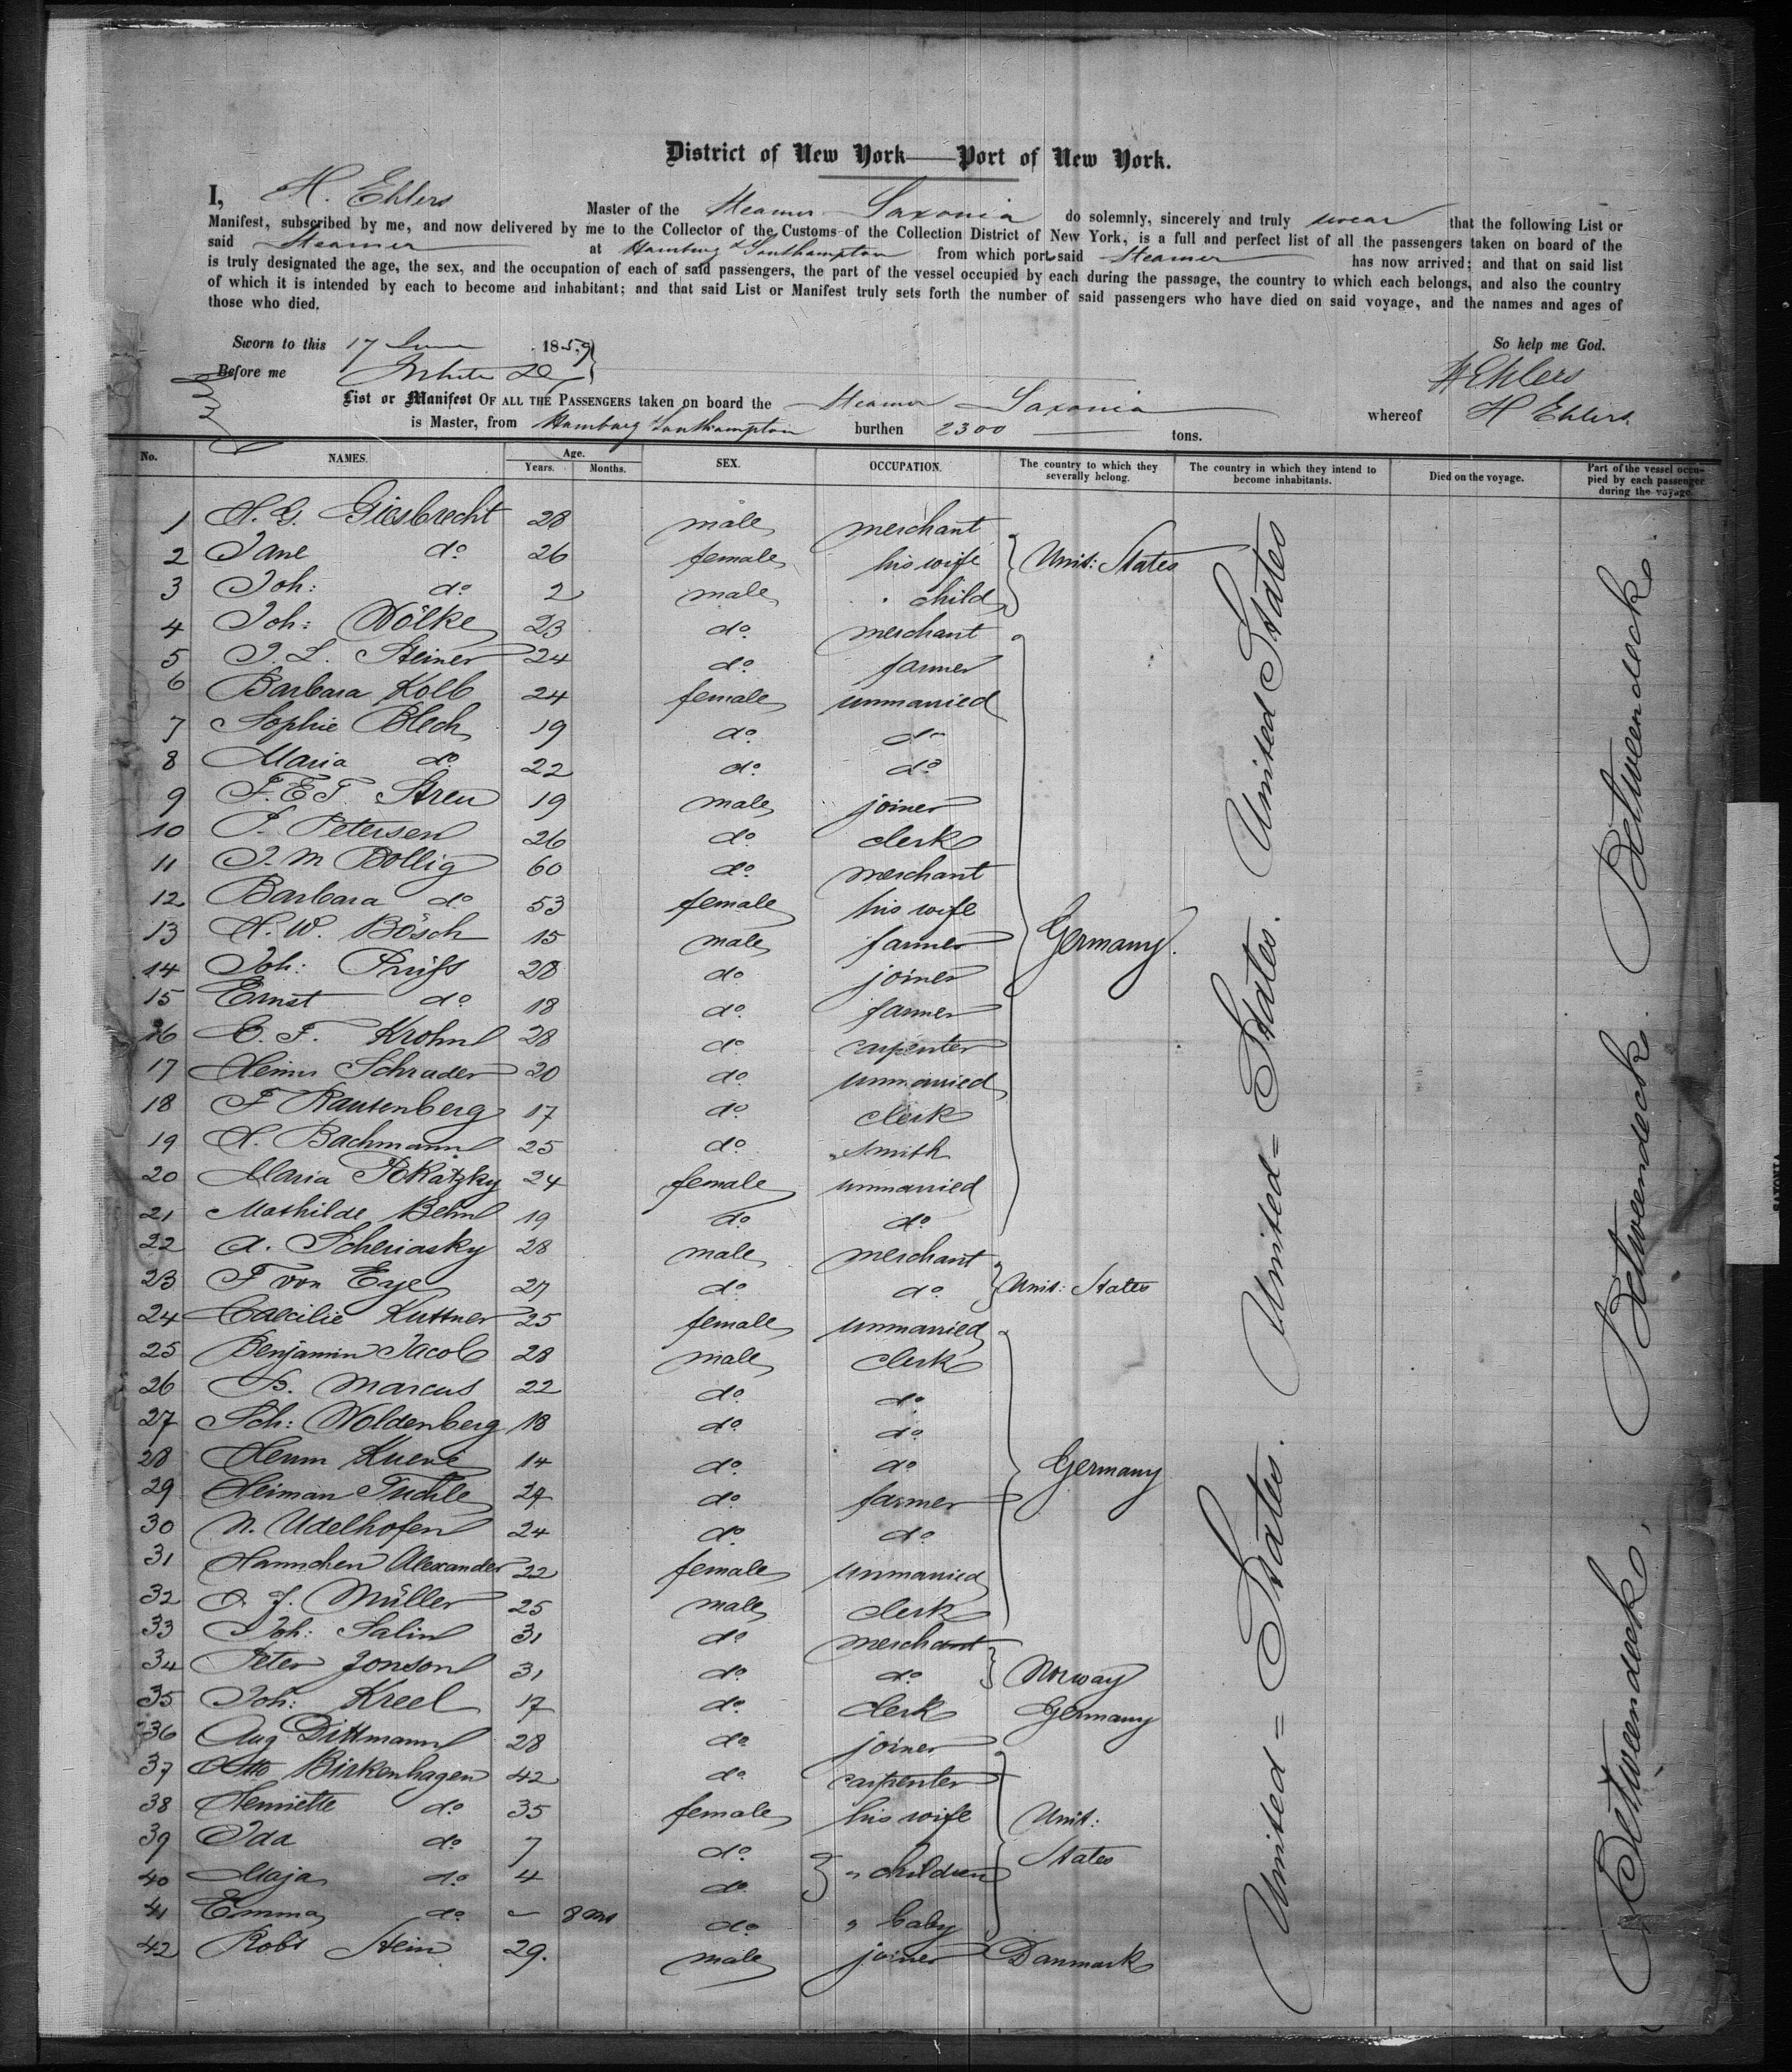 District of New York—Port of New York.
I, H. Ehlers Master of the Steamer Saxonia do solemnly, sincerely and truly swear that the following List or
Manifest, subscribed by me, and now delivered by me to the Collector of the Customs of the Collection District of New York, is a full and perfect list of all the passengers taken on board of the
said Steamer at Hamburg & Southampton from which port said Steamer has now arrived; and that on said list
is truly designated the age, the sex, and the occupation of each of said passengers, the part of the vessel occupied by each during the passage, the country to which each belongs, and also the country
of which it is intended by each to become and inhabitant; and that said List or Manifest truly sets forth the number of said passengers who have died on said voyage, and the names and ages of
those who died.
Sworn to this 17 June 1859 So help me God.
Before me White H Ehlers
List or Manifest OF ALL THE PASSENGERS taken on board the Steamer Saxonia whereof H Ehlers
is Master, from Hamburg Southampton burthen 2300 tons.
No. NAMES. Age. Years. Months. SEX. OCCUPATION. The country to which they severally belong. The country in which they intend to become inhabitants. Died on the voyage. Part of the vessel occupied by each passenger during the voyage.
1 H. G. Giesbrecht 28 male merchant
2 Jane do 26 female his wife Unit: States
3 Joh: do 2 male " child
4 Joh: Wölke 23 do merchant
5 J. L. Steiner 24 do farmer
6 Barbara Kolb 24 female unmarried
7 Sophie Blech 19 do do
8 Maria do 22 do do
9 F. E. T. Streu 19 male joiner
10 P. Petersen 26 do clerk
11 J. M Bollig 60 do merchant
12 Barbara do 53 female his wife
13 H. W. Bösch 15 male farmer Germany.
14 Joh: Prüfs 28 do joiner
15 Ernst do 18 do farmer
16 C. F. Krohn 28 do carpenter
17 Heinr Schrader 20 do unmarried
18 F Rautenberg 17 do clerk
19 H. Bachmann 25 do smith
20 Maria Pokatzky 24 female unmarried
21 Mathilde Behn 19 do do
22 A. Scheriasky 28 male merchant
23 F von Eye 27 do do Unit: States
24 Caecilie Kuttner 25 female unmarried
25 Benjamin Jacob 28 male clerk
26 B. Marcus 22 do do
27 Sch: Woldenberg 18 do do
28 Herm 14 do do Germany
29 Heiman Tuchle 24 do farmer
30 N. Udelhofen 24 do do
31 Hannchen Alexander 22 female unmarried
32 J. Müller 25 male clerk
33 Joh: Salin 31 do merchant
34 Peter Jonson 31 do do Norway
35 Joh: Kreel 17 do clerk Germany
36 Aug Dittmann 28 do joiner
37 Otto Birkenhagen 42 do carpenter
38 Henriette do 35 female his wife Unit:
39 Ida do 7 do States
40 Maja do 4 do " children
41 Emma do – 8 ms do " baby
42 Robt Stein 29. male joiner Danmark
United States
United = States.
United = States.
Betweendeck.
Betweendeck.
Betweendeck.
SAXONIA